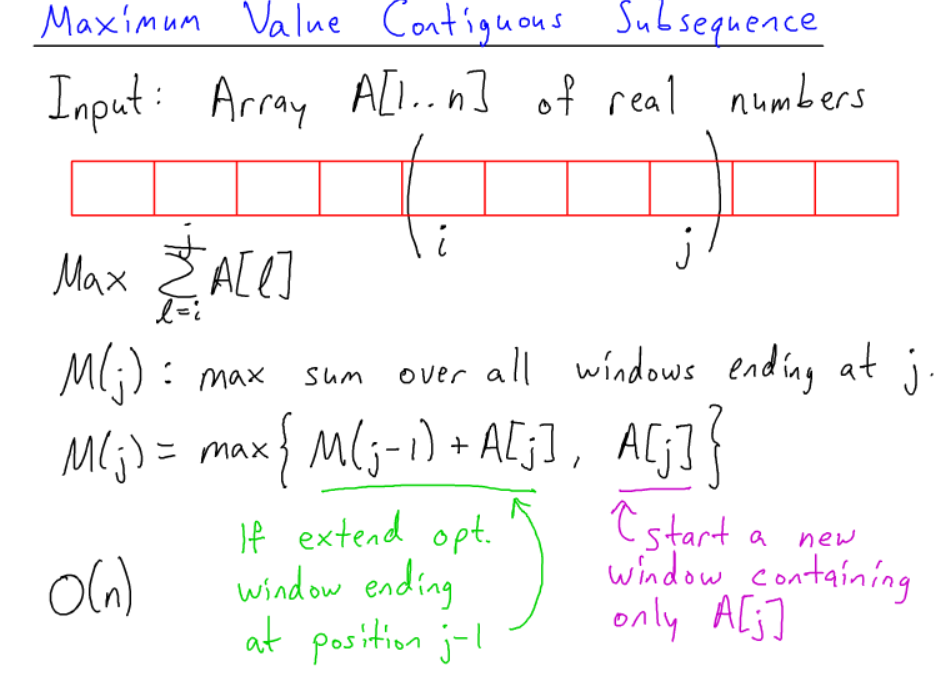 Maximum Value Contiguous Subsequence
Input: Array A[1..n] of real numbers
i j
Max ∑_{l=i}^{j} A[l]
M(j): max sum over all windows ending at j.
M(j) = max{ M(j-1) + A[j], A[j] }
If extend opt.
window ending
at position j-1
start a new
window containing
only A[j]
O(n)